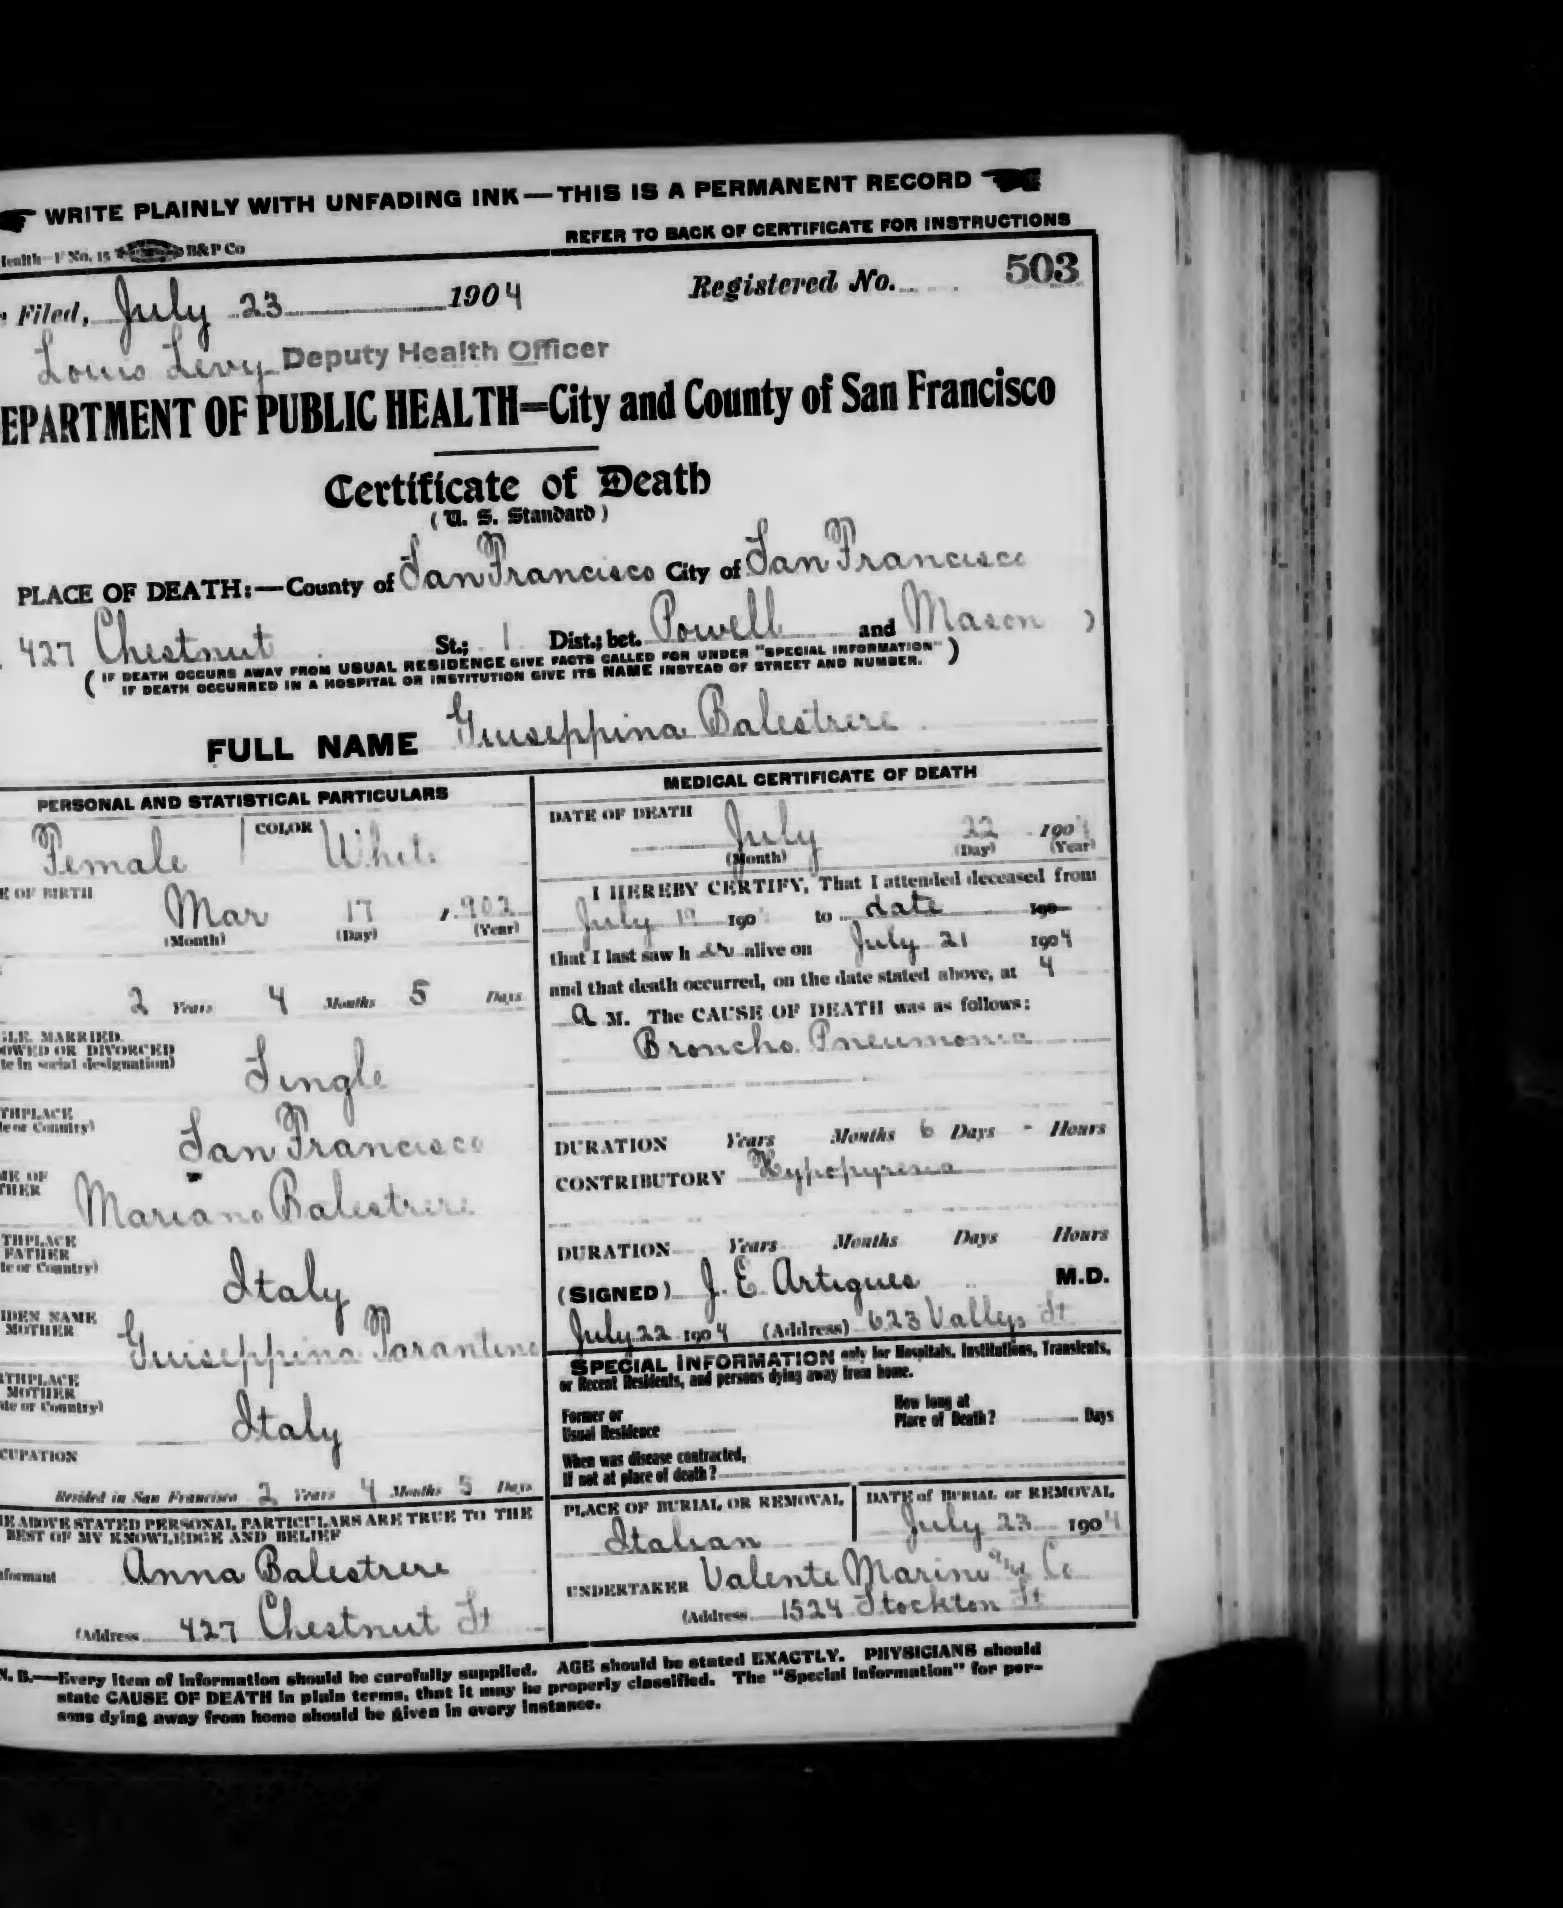 WRITE PLAINLY WITH UNFADING INK—THIS IS A PERMANENT RECORD
REFER TO BACK OF CERTIFICATE FOR INSTRUCTIONS
ealth—F No. 15 B&P Co
Filed, July 23 1904 Registered No. 503
Louis Levy Deputy Health Officer
EPARTMENT OF PUBLIC HEALTH=City and County of San Francisco
Certificate of Death
(U. S. Standard)
PLACE OF DEATH:—County of San Francisco City of San Francisco
427 Chestnut St.; 1 Dist.; bet. Powell and Mason )
( IF DEATH OCCURS AWAY FROM USUAL RESIDENCE GIVE FACTS CALLED FOR UNDER "SPECIAL INFORMATION" )
IF DEATH OCCURRED IN A HOSPITAL OR INSTITUTION GIVE ITS NAME INSTEAD OF STREET AND NUMBER.
FULL NAME Giuseppina Balestrere
PERSONAL AND STATISTICAL PARTICULARS
Female COLOR White
E OF BIRTH
Mar 17 1902
(Month) (Day) (Year)
2 Years 4 Months 5 Days
GLE, MARRIED,
OWED OR DIVORCED
te in social designation)
Single
THPLACE
te or Country)
San Francisco
ME OF
THER
Mariano Balestrere
THPLACE
FATHER
te or Country)
Italy
IDEN NAME
MOTHER
Guiseppina Parantino
RTHPLACE
MOTHER
te or Country)
Italy
CUPATION
Resided in San Francisco 2 Years 4 Months 5 Days
E ABOVE STATED PERSONAL PARTICULARS ARE TRUE TO THE
BEST OF MY KNOWLEDGE AND BELIEF
nformant Anna Balestrere
(Address 427 Chestnut St
MEDICAL CERTIFICATE OF DEATH
DATE OF DEATH
July 22 1904
(Month) (Day) (Year)
I HEREBY CERTIFY, That I attended deceased from
July 17 190 to date 190
that I last saw h er alive on July 21 1904
and that death occurred, on the date stated above, at 4
a M. The CAUSE OF DEATH was as follows:
Broncho Pneumonia
DURATION Years Months 6 Days - Hours
CONTRIBUTORY Hypopyresia
DURATION Years Months Days Hours
(SIGNED) J. E. Artigues M.D.
July 22 1904 (Address) 623 Vallejo St
SPECIAL INFORMATION only for Hospitals, Institutions, Transients,
or Recent Residents, and persons dying away from home.
Former or
Usual Residence
How long at
Place of Death? Days
When was disease contracted,
If not at place of death?
PLACE OF BURIAL OR REMOVAL
Italian
DATE of BURIAL or REMOVAL
July 23 1904
UNDERTAKER Valente Marini and Co
(Address 1524 Stockton St
N. B.—Every item of information should be carefully supplied. AGE should be stated EXACTLY. PHYSICIANS should
state CAUSE OF DEATH in plain terms, that it may be properly classified. The "Special Information" for per-
sons dying away from home should be given in every instance.